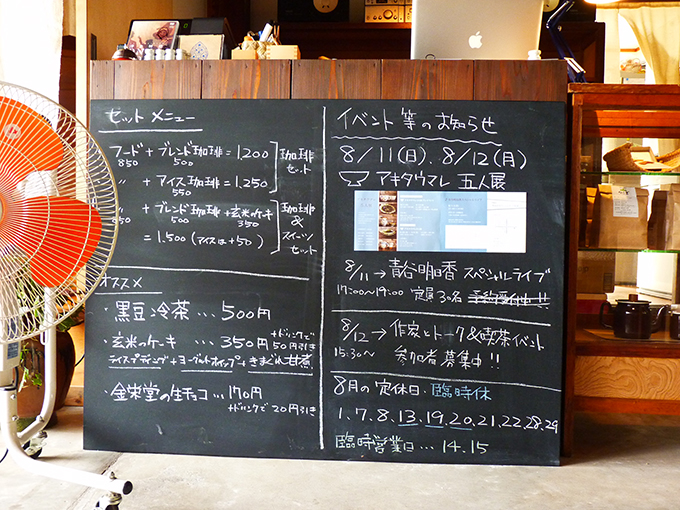 セット メニュー
フード + ブレンド珈琲 = 1,200
850 500
珈琲
セット
+ アイス珈琲 = 1,250
550
+ ブレンド珈琲 + 玄米のケーキ
850 500 350
= 1,500 (アイスは+50)
珈琲
&
スイーツ
セット
オススメ
・黒豆冷茶 … 500円
・玄米のケーキ … 350円
+ドリンクで
50円引き
ライスプディング+ヨーグルトホイップ+きまぐれ甘煮
・金栄堂の生チョコ … 170円
+ドリンクで 20円引き
イベント等のお知らせ
8/11(日). 8/12(月)
アキタウマレ 五人展
8/11 → 青谷明日香 スペシャルライブ
17:00~19:00 定員30名 予約受付中!!
8/12 → 作家とトーク&喫茶イベント
15:30~ 参加者募集中!!
8月の定休日・臨時休
1.7.8.13.19.20.21.22.28.29
臨時営業日 … 14.15